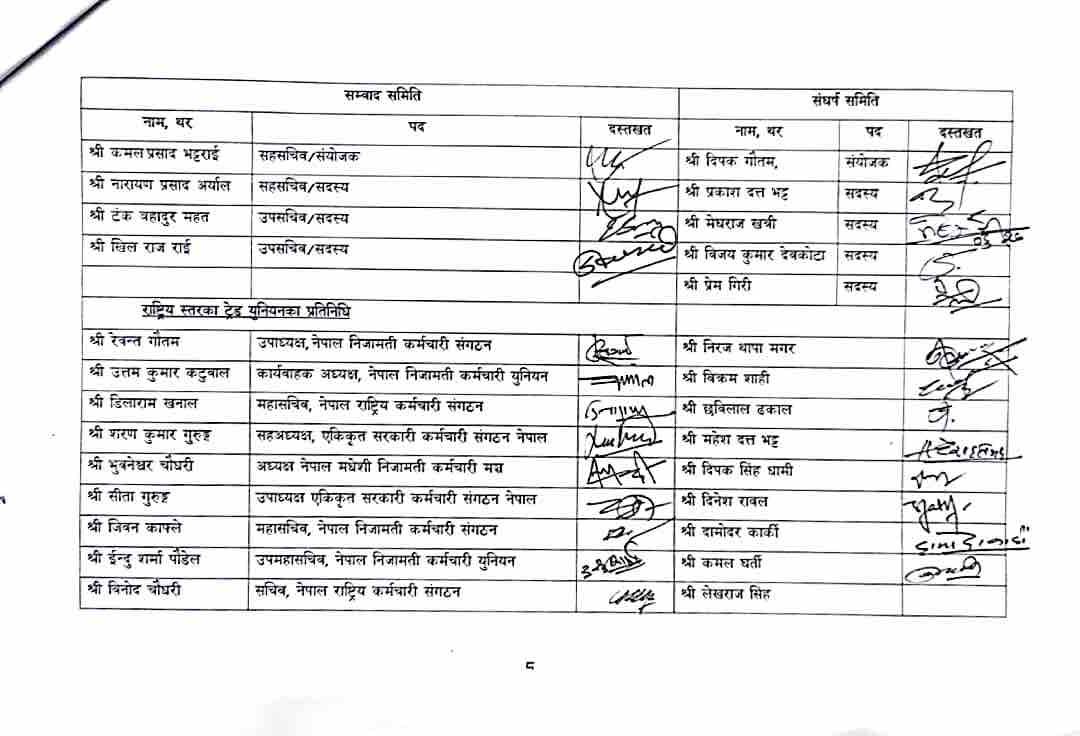 सम्वाद समिति संघर्ष समिति
नाम, थर पद दस्तखत नाम, थर पद दस्तखत
श्री कमल प्रसाद भट्टराई सहसचिव/संयोजक श्री दिपक गौतम, संयोजक
श्री नारायण प्रसाद अर्याल सहसचिव/सदस्य श्री प्रकाश दत्त भट्ट सदस्य
श्री टंक वहादुर महत उपसचिव/सदस्य श्री मेघराज खत्री सदस्य
श्री खिल राज राई उपसचिव/सदस्य श्री विजय कुमार देवकोटा सदस्य
श्री प्रेम गिरी सदस्य
राष्ट्रिय स्तरका ट्रेड युनियनका प्रतिनिधि
श्री रेवन्त गौतम उपाध्यक्ष, नेपाल निजामती कर्मचारी संगठन श्री निरज थापा मगर
श्री उत्तम कुमार कटुवाल कार्यवाहक अध्यक्ष, नेपाल निजामती कर्मचारी युनियन श्री विक्रम शाही
श्री डिलाराम खनाल महासचिव, नेपाल राष्ट्रिय कर्मचारी संगठन श्री छविलाल ढकाल
श्री शरण कुमार गुरुङ्ग सहअध्यक्ष, एकिकृत सरकारी कर्मचारी संगठन नेपाल श्री महेश दत्त भट्ट
श्री भुवनेश्वर चौधरी अध्यक्ष नेपाल मधेशी निजामती कर्मचारी मञ्च श्री दिपक सिंह धामी
श्री सीता गुरुङ्ग उपाध्यक्ष एकिकृत सरकारी कर्मचारी संगठन नेपाल श्री दिनेश रावल
श्री जिवन काफ्ले महासचिव, नेपाल निजामती कर्मचारी संगठन श्री दामोदर कार्की
श्री ईन्दु शर्मा पौडेल उपमहासचिव, नेपाल निजामती कर्मचारी युनियन श्री कमल घर्ती
श्री विनोद चौधरी सचिव, नेपाल राष्ट्रिय कर्मचारी संगठन श्री लेखराज सिंह
८